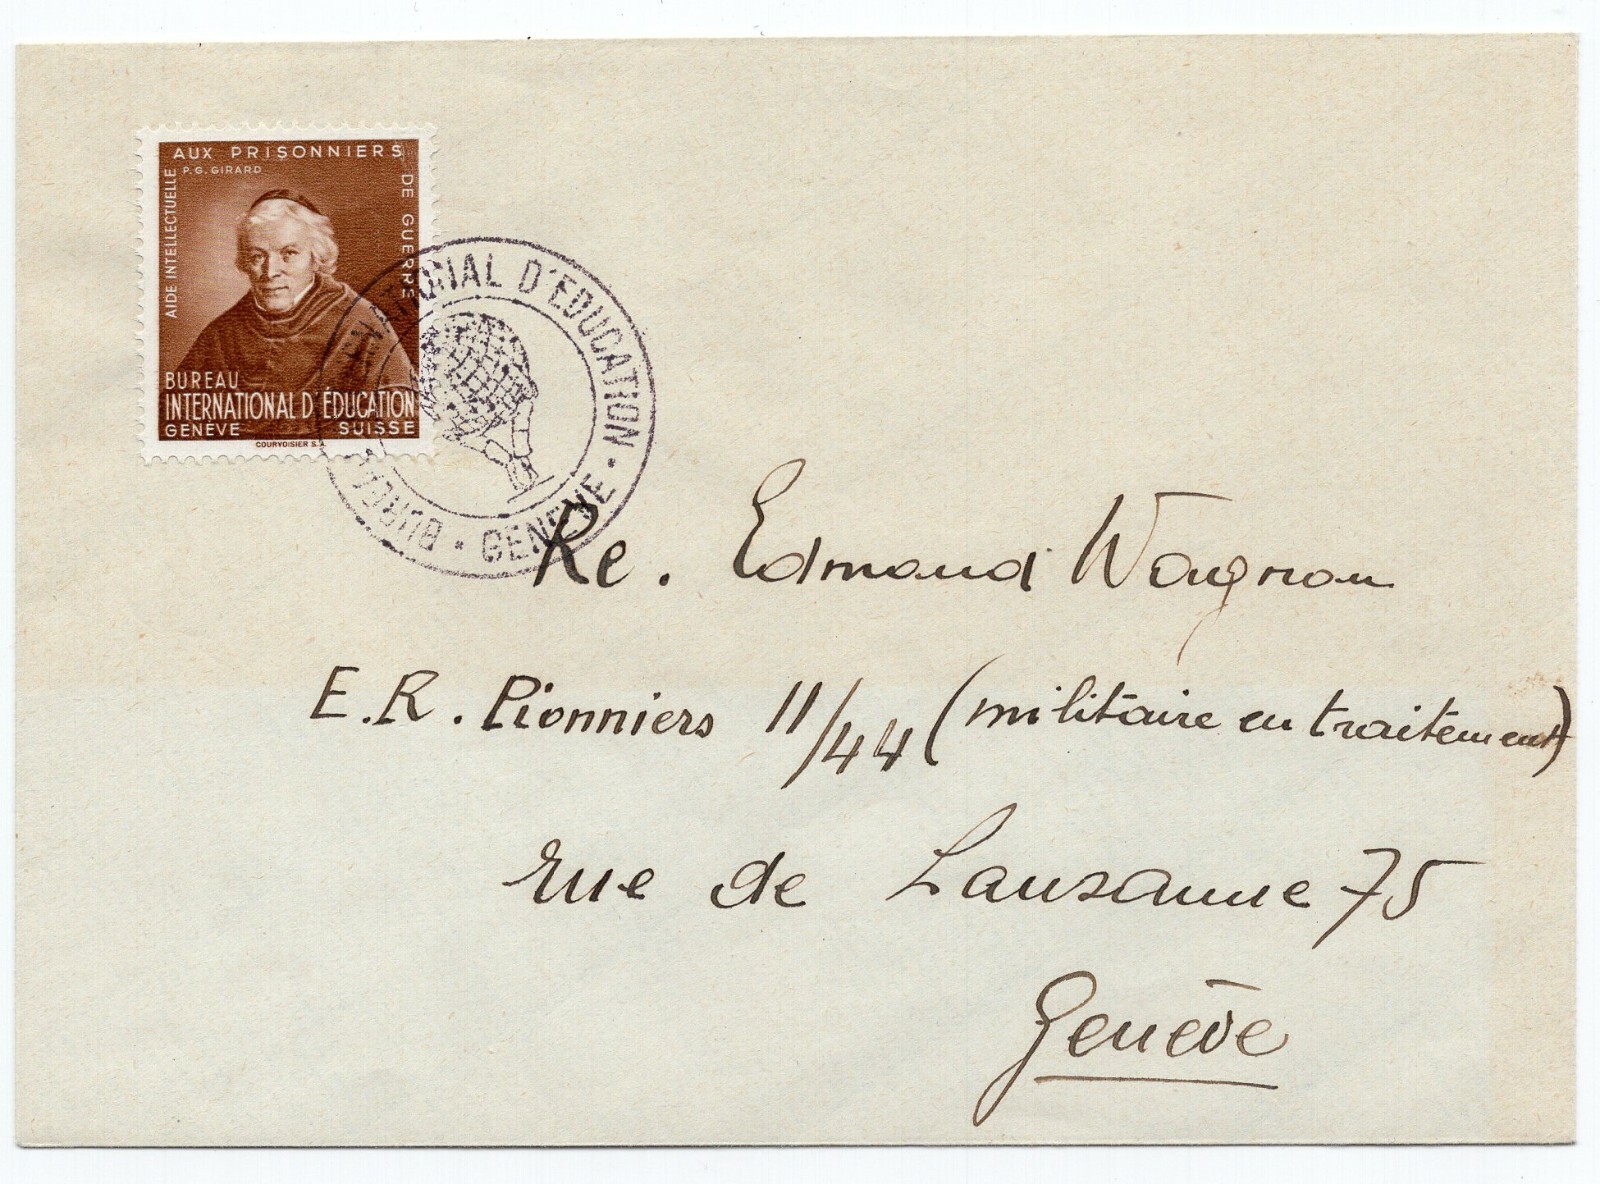 AUX PRISONNIERS
P.G. GIRARD
AIDE INTELLECTUELLE
DE GUERRE
BUREAU
INTERNATIONAL D'ÉDUCATION
GENÈVE SUISSE
COURVOISIER S.A.
BUREAU INTERNATIONAL D'EDUCATION · GENEVE ·
Re. Edmond Wagnon
E.R. Pionniers 11/44 (militaire en traitement)
rue de Lausanne 75
Genève